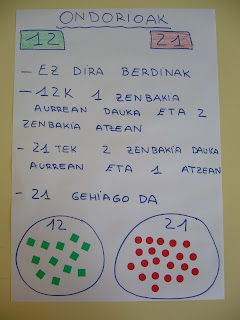 ONDORIOAK
12 21
- EZ DIRA BERDINAK
- 12K 1 ZENBAKIA
AURREAN DAUKA ETA 2
ZENBAKIA ATZEAN
- 21 TEK 2 ZENBAKIA DAUKA
AURREAN ETA 1 ATZEAN
- 21 GEHIAGO DA
12 21